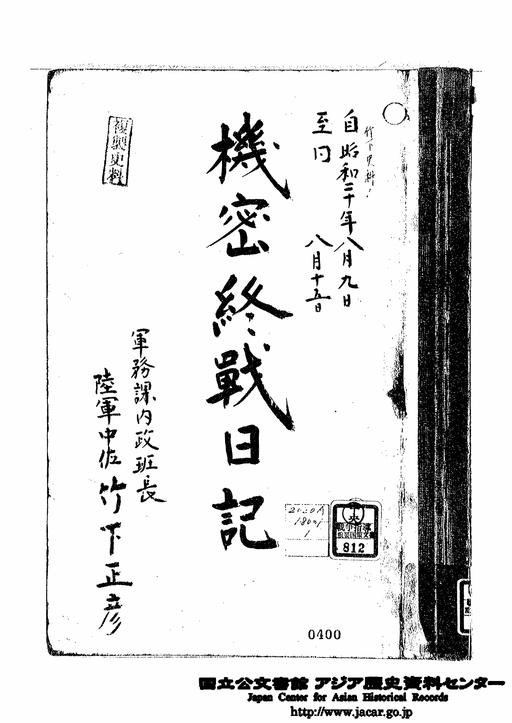 竹下史料
自昭和二十年八月九日
至同 八月十五日
機密終戰日記
複製史料
軍務課内政班長
陸軍中佐 竹下正彦
中央
戦争指導
重要国策文書
812
0400
国立公文書館 アジア歴史資料センター
Japan Center for Asian Historical Records
http://www.jacar.go.jp